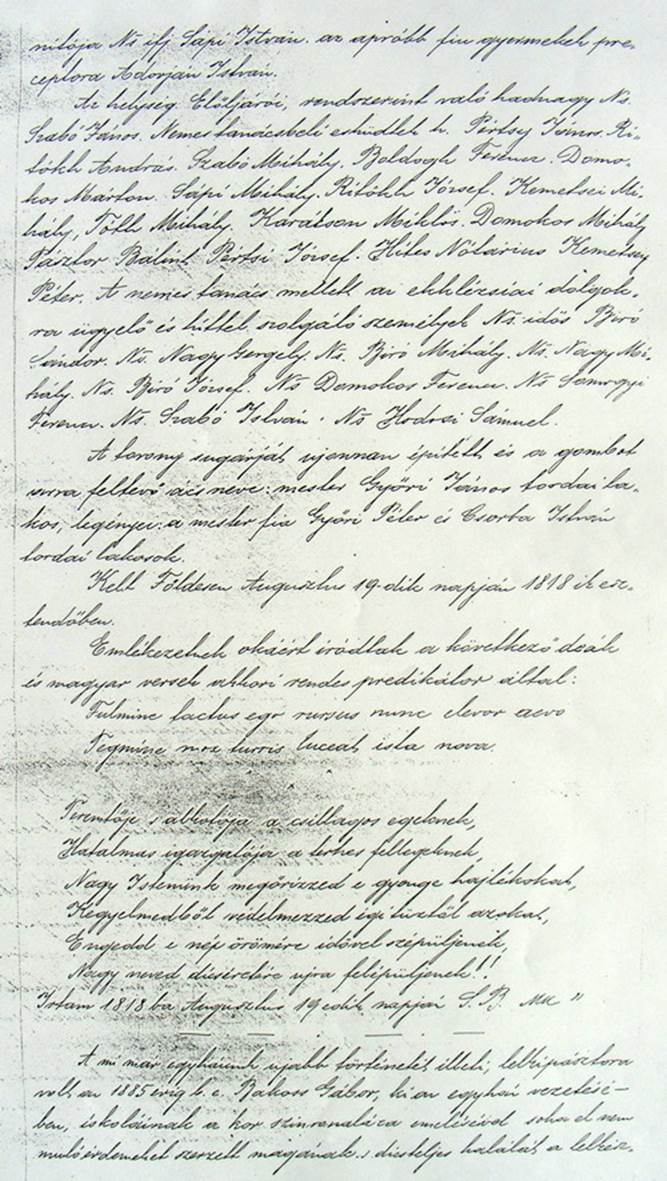 nitója Ns ifj Sápi István. az apróbb fiu gyermekek pre-
ceptora Adorján István.
Az helység Elöljárói, rendszerint való hadnagy Ns.
Szabó János. Nemes tanácsbeli esküdtek h. Pértsy János. Ri-
tókh András. Szabó Mihály. Boldogh Ferencz. Domo-
kos Márton. Sápi Mihály. Ritókh József. Kemetsei Mi-
hály, Tóth Mihály. Karátson Miklós. Domokos Mihály
Pásztor Bálint Pértsi József. Hites Nótárius Kemetsey
Péter. A nemes tanács mellett az ekklézsiai dolgok-
ra ügyelő és hittel szolgáló személyek Ns. idős Biró
Sándor. Ns. Nagy Gergely. Ns. Biró Mihály. Ns. Nagy Mi-
hály. Ns. Biró József. Ns Domokos Ferencz. Ns
Ferencz. Ns. Szabó István. Ns Hodosi Sámuel.
A torony sugárját ujonnan épitett és a gombot
arra feltevő ács neve: mester Győri János tordai la-
kos, legényei: a mester fia Győri Péter és Csorba István
tordai lakosok.
Kelt Földesen Augusztus 19-dik napján 1818 ik esz-
tendőben.
Emlékezetnek okáért iródtak a következő deák
és magyar versek akkori rendes predikátor által:
Fulmine tactus ego rursus nunc elevor aevo
Tegmine mox turris luceat ista nova.
Teremtője s alkotója a csillagos egeknek,
Hatalmas igazgatója a terhes fellegeknek,
Nagy Istenünk megőrizzed e gyenge hajlékokat,
Kegyelmedből védelmezzed égi tűztől azokat,
Engedd e nép örömére idővel szépüljenek,
Nagy neved dicséretére ujra felépüljenek!!
Irtam 1818 ba Augusztus 19 edik napján S. B. "
A mi már egyházunk ujabb történetét illeti, lelkipásztora
volt az 1885 évig b. e. Rakoss Gábor, ki az egyház vezetésé-
ben, iskoláinak a kor szinvonalára emelésével soha el nem
muló érdemeket szerzett magának. s dicsteljes halálát a lelkész-